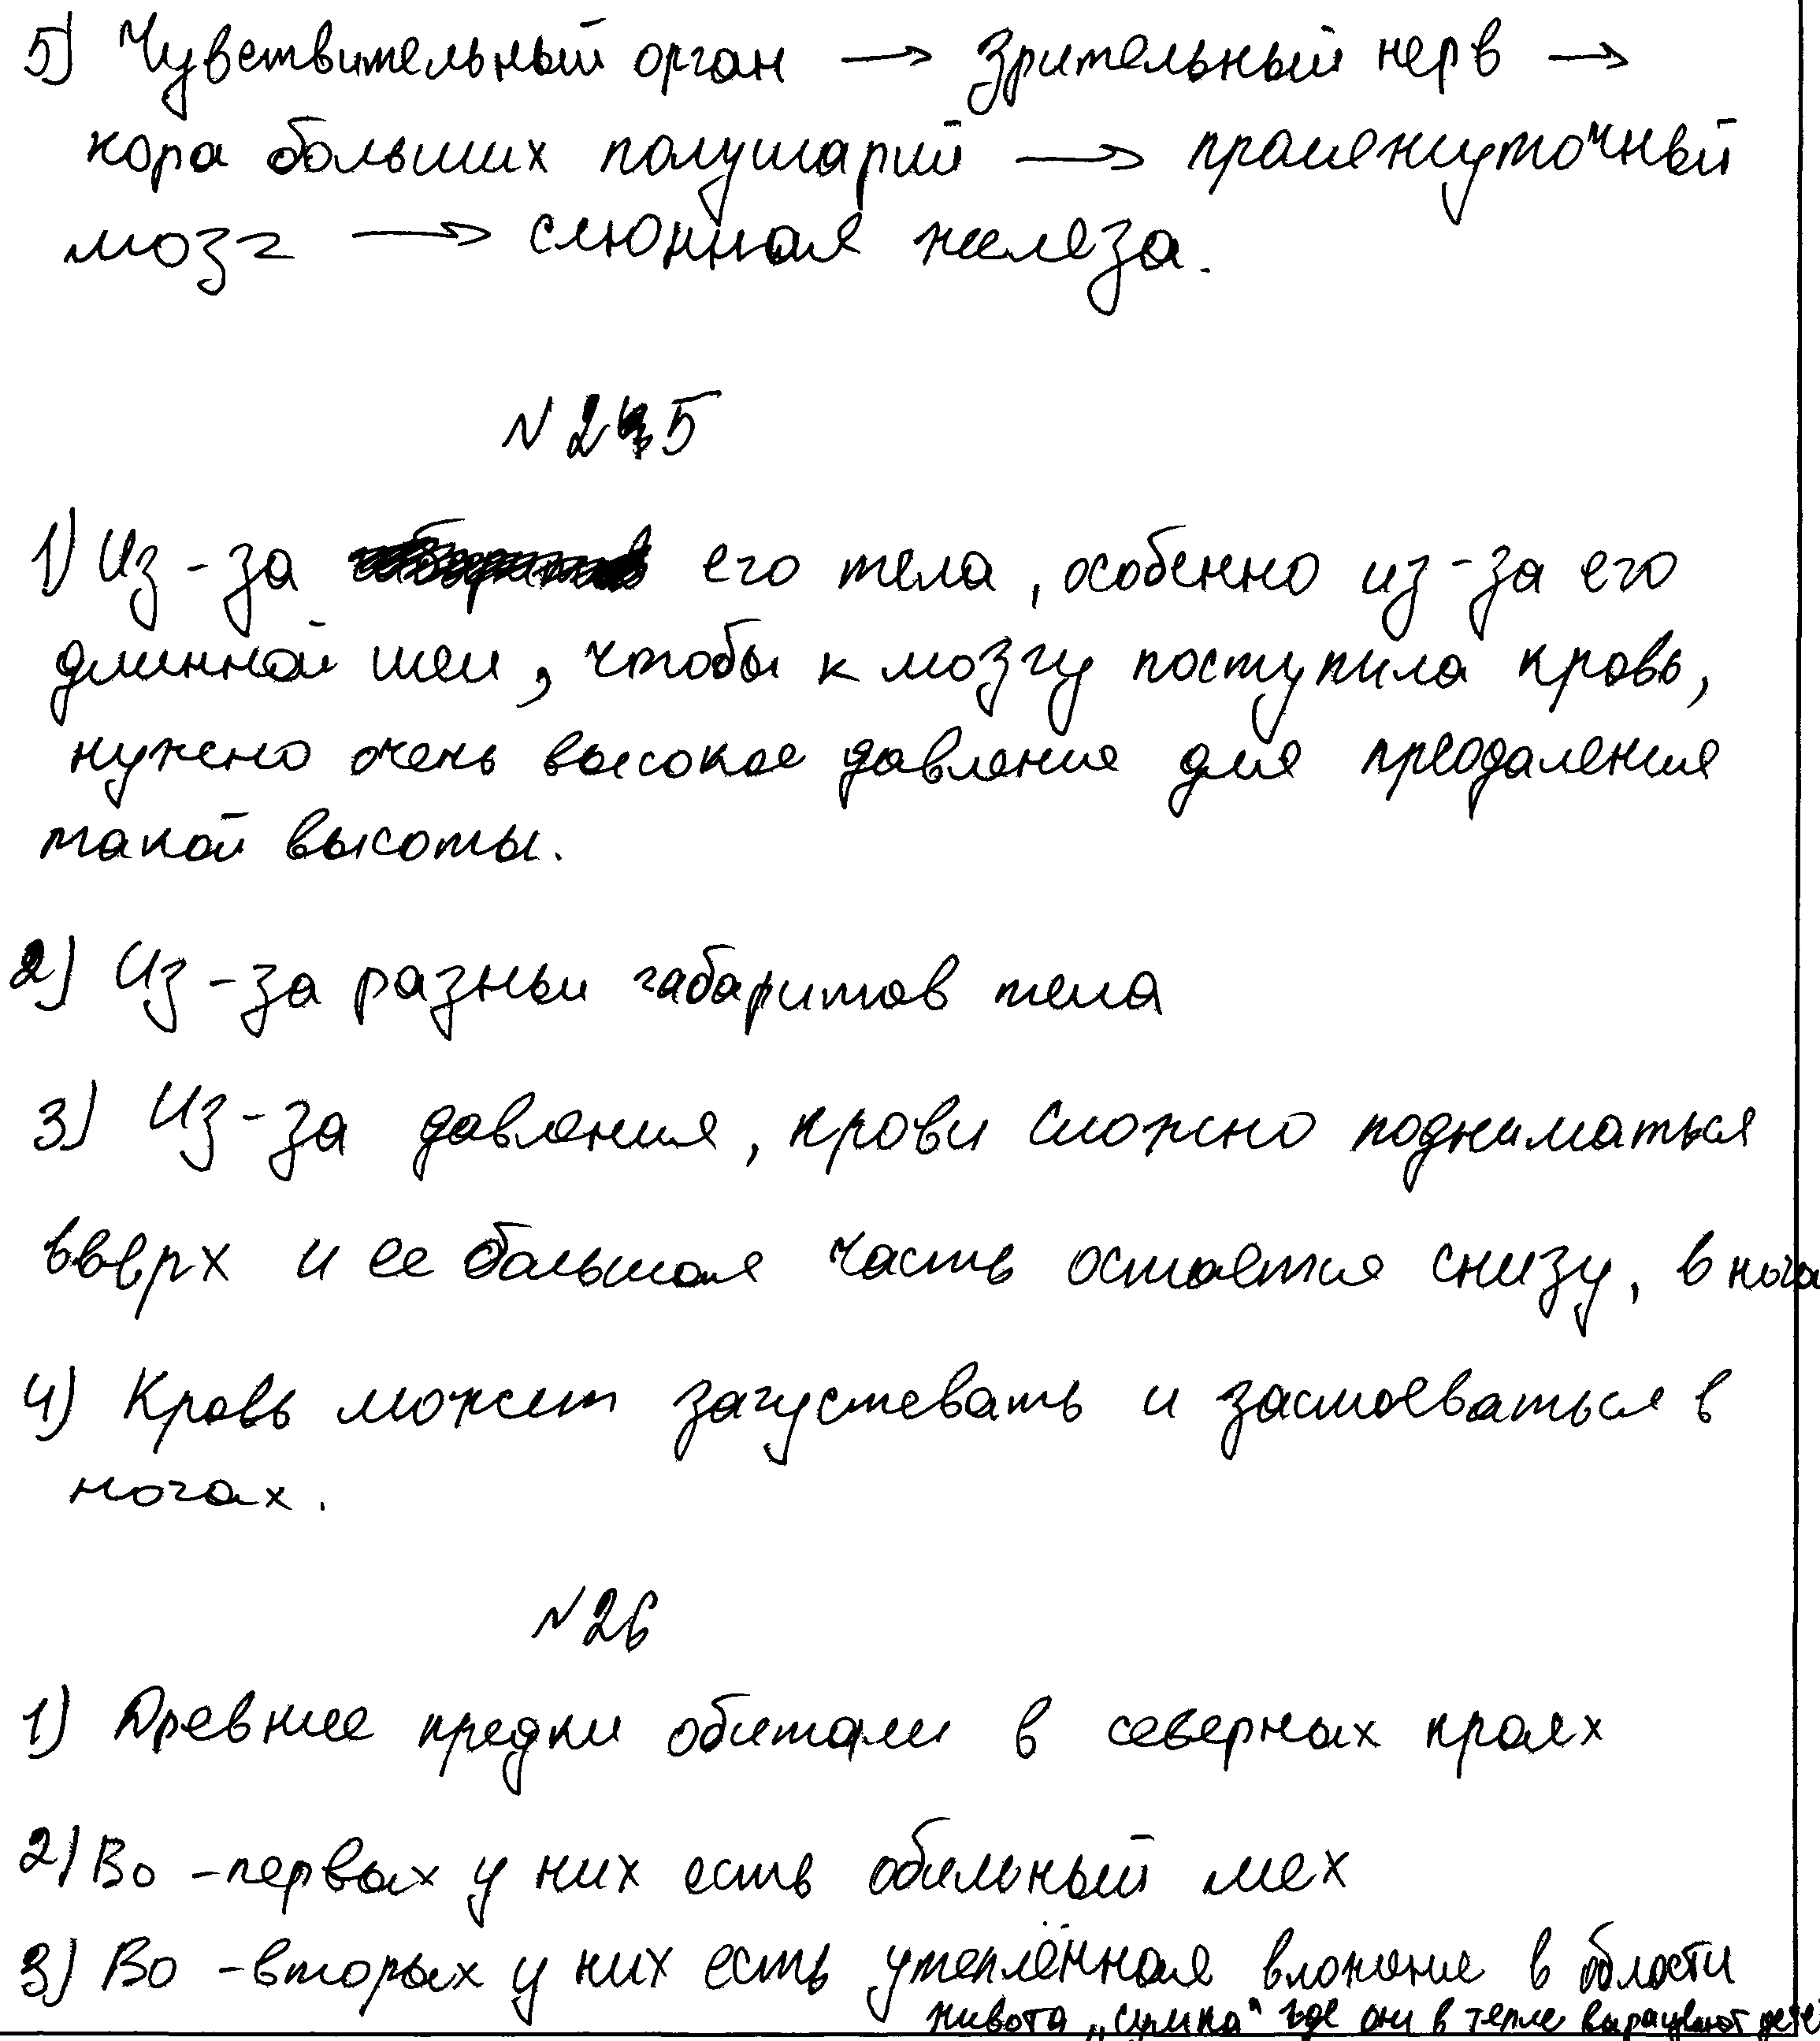 5) Чувствительный орган → зрительный нерв →
кора больших полушарий → промежуточный
мозг → слюнная железа.
№ 25
1) Из-за его тела, особенно из-за его
длинной шеи, чтобы к мозгу поступила кровь,
нужено очень высокое давление для преодаления
такой высоты.
2) Из-за разных габаритов тела
3) Из-за давления, крови сложно подниматься
вверх и ее большая часть остаётся снизу, в нога
4) Кровь может загустевать и застаеваться в
ногах.
№26
1) Древние предки обитали в северных краях
2) Во-первых у них есть обильный мех
3) Во-вторых у них есть утеплённая вложение в области
живота „сумка“ где они в тепле выращивают дете